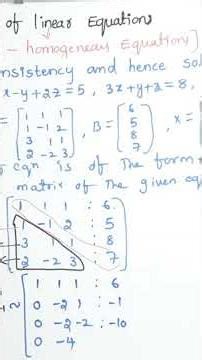 of linear Equation
- homogeneous Equations]
nsistency and hence sol
x-y+2z=5, 3x+y+z=8,
= [1 1 1 B = [6 x =
1 -1 2 5
3 1 1 8
2 -2 3] 7]
eqn is of The form
matrix of The given eq
[1 1 1 : 6
1 -1 2 : 5
3 1 1 : 8
2 -2 3 : 7]
~ [1 1 1 : 6
0 -2 1 : -1
0 -2 -2 : -10
0 -4